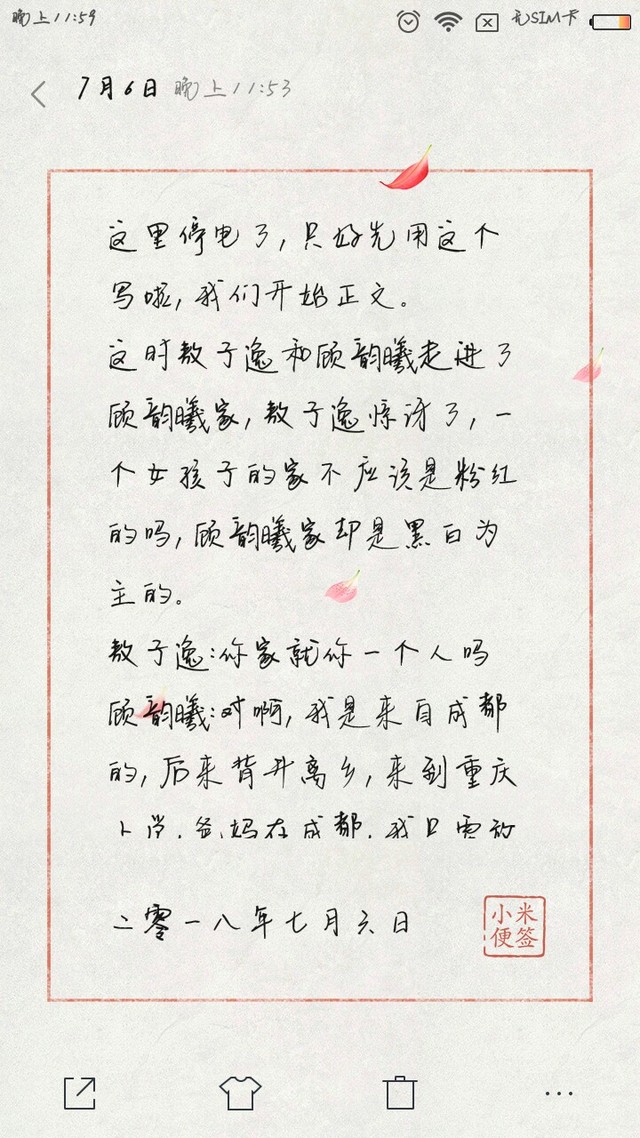 晚上11:59
无SIM卡
7月6日 晚上11:53
这里停电了，只好先用这个
写啦，我们开始正文。
这时敖子逸和顾韵曦走进了
顾韵曦家，敖子逸惊讶了，一
个女孩子的家不应该是粉红
的吗，顾韵曦家却是黑白为
主的。
敖子逸：你家就你一个人吗
顾韵曦：对啊，我是来自成都
的，后来背井离乡，来到重庆
上学，爸妈在成都，我只需放
二零一八年七月六日
小米
便签